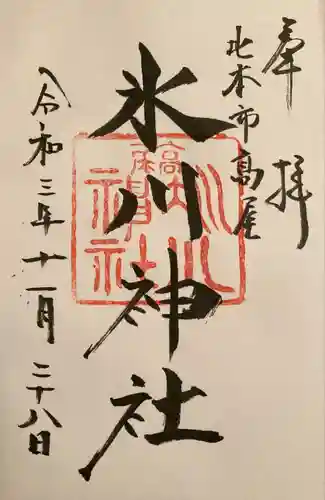 奉拝
北本市高尾
氷川神社
高尾
氷川
神社
令和三年十一月二十八日